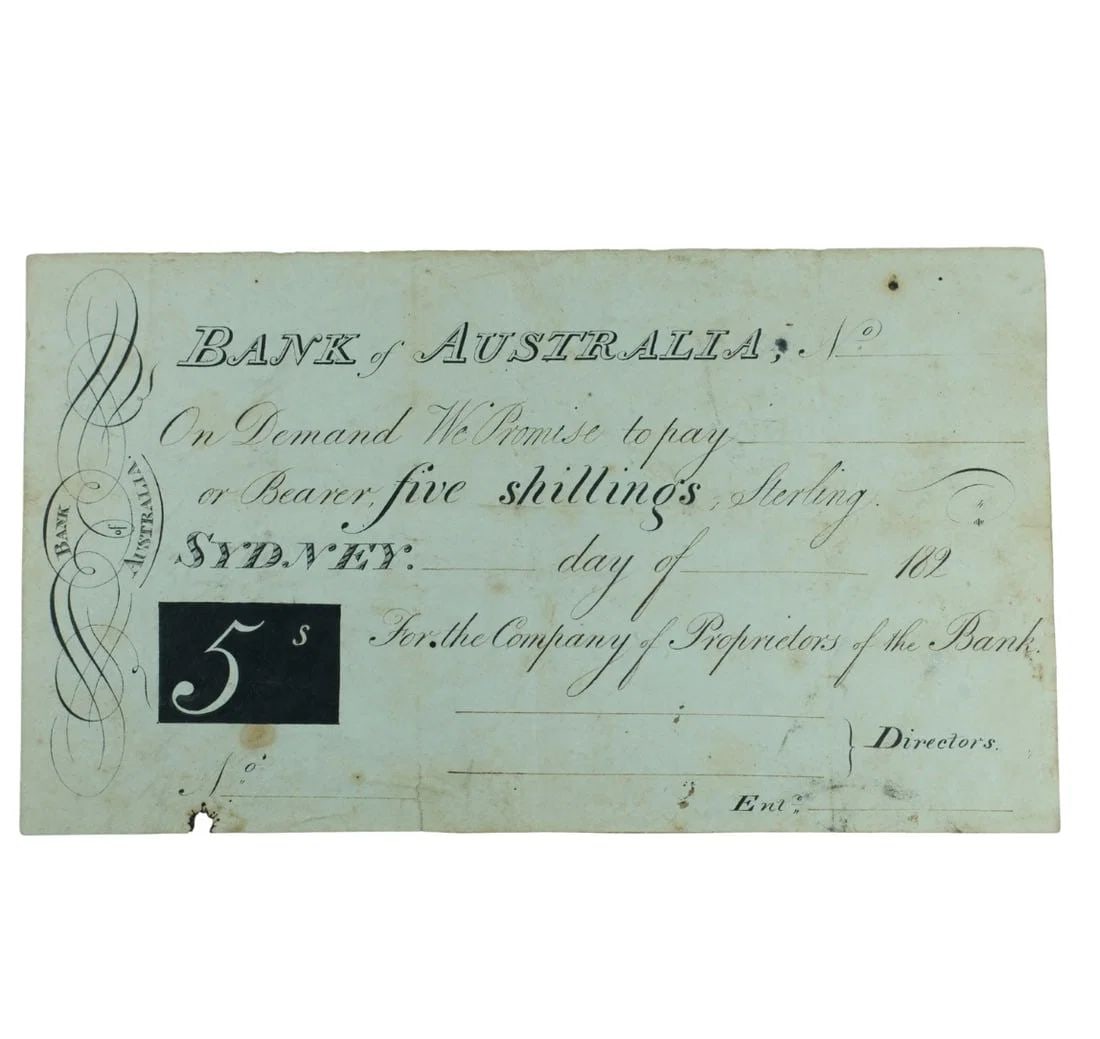 BANK of AUSTRALIA; No
On Demand We Promise to pay
or Bearer, five shillings, Sterling.
BANK of AUSTRALIA.
SYDNEY: day of 182
5 s
For the Company of Proprietors of the Bank.
Directors.
No
Entd